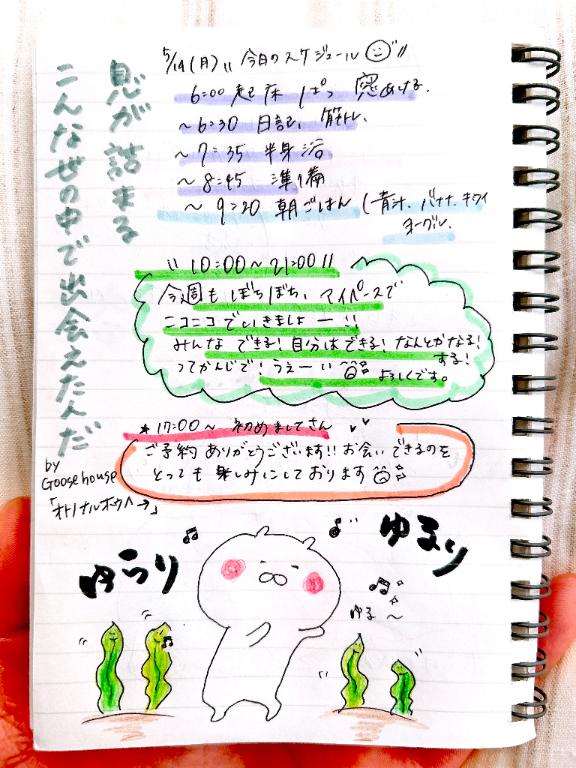 5/14(月)" 今日のスケジュール"
6:00 起床 ぱっ 窓あける.
~6:30 日記、筋トレ.
~7:35 半身浴
~8:45 準備
~9:20 朝ごはん (青汁、バナナ、キウイ
ヨーグル.
"10:00~21:00!!
今週も ぼちぼち、マイペースで
ニコニコ でいきましょーー!!
みんな できる!自分はできる!なんとかなる!
する!
ってかんじで!うぇーーい
よろしくです。
* 17:00~ 初めましてさん
ご予約ありがとうございます!!お会いできるのを
とっても 楽しみにしております
息が詰まる
こんな世の中で出会えたんだ
by
Goosehouse
「オトノナルホウヘ→」
ゆらり
ゆるり
ゆる~